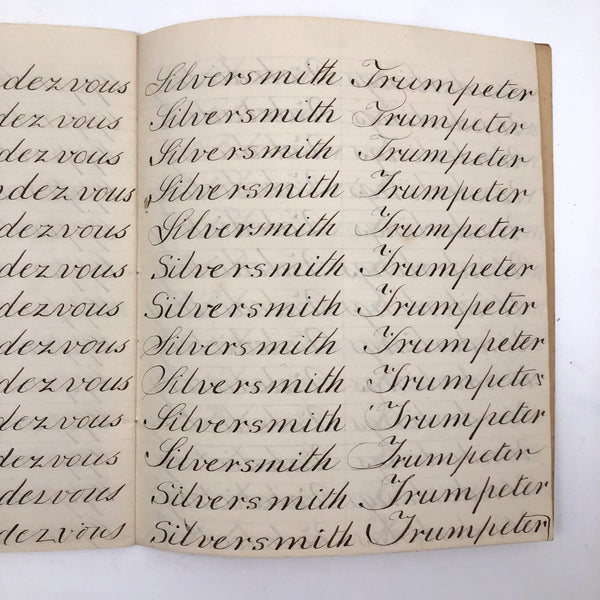 dezvous
dezvous
dezvous
ndezvous
dezvous
dezvous
dezvous
dezvous
dezvous
dezvous
dezvous
dezvous
dezvous
Silversmith Trumpeter
Silversmith Trumpeter
Silversmith Trumpeter
Silversmith Trumpeter
Silversmith Trumpeter
Silversmith Trumpeter
Silversmith Trumpeter
Silversmith Trumpeter
Silversmith Trumpeter
Silversmith Trumpeter
Silversmith Trumpeter
Silversmith Trumpeter
Silversmith Trumpeter